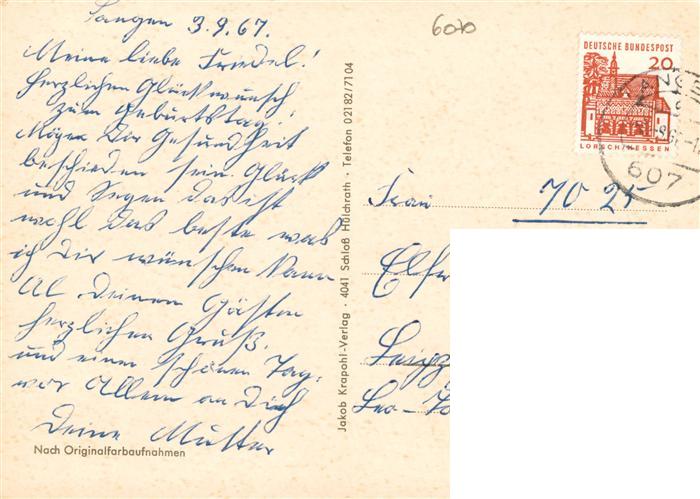 Langen 3.9.67.
Meine liebe Friedel!
Herzlichen Glückwunsch
zum Geburtstag!
Möge Dir Gesundheit
beschieden sein. Glück
und Segen das ist
wohl das beste was
ich Dir wünschen kann
Al Deinen Gästen
herzlichen Gruß.
und einen schönen Tag.
vor Allem an Dich
Deine Mutter
Nach Originalfarbaufnahmen
Jakob Krapohl-Verlag · 4041 Schloß Hülchrath · Telefon 02182/7104
6070
DEUTSCHE BUNDESPOST
20
LORSCH/HESSEN
607
Frau 70 25
Elfr
Leipz
Leo-